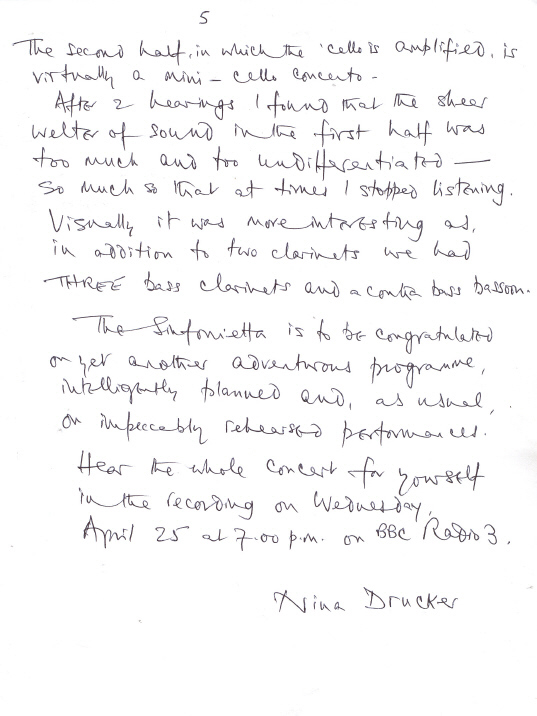 5
The second half, in which the 'cello is amplified, is
virtually a mini – cello concerto –
After 2 hearings I found that the sheer
welter of sound in the first half was
too much and too undifferentiated —
so much so that at times I stopped listening.
Visually it was more interesting as,
in addition to two clarinets we had
THREE bass clarinets and a contra bass bassoon.
The Sinfonietta is to be congratulated
on yet another adventurous programme,
intelligently planned and, as usual,
on impeccably rehearsed performances.
Hear the whole concert for yourself
in the recording on Wednesday,
April 25 at 7.00 p.m. on BBC Radio 3.
Nina Drucker